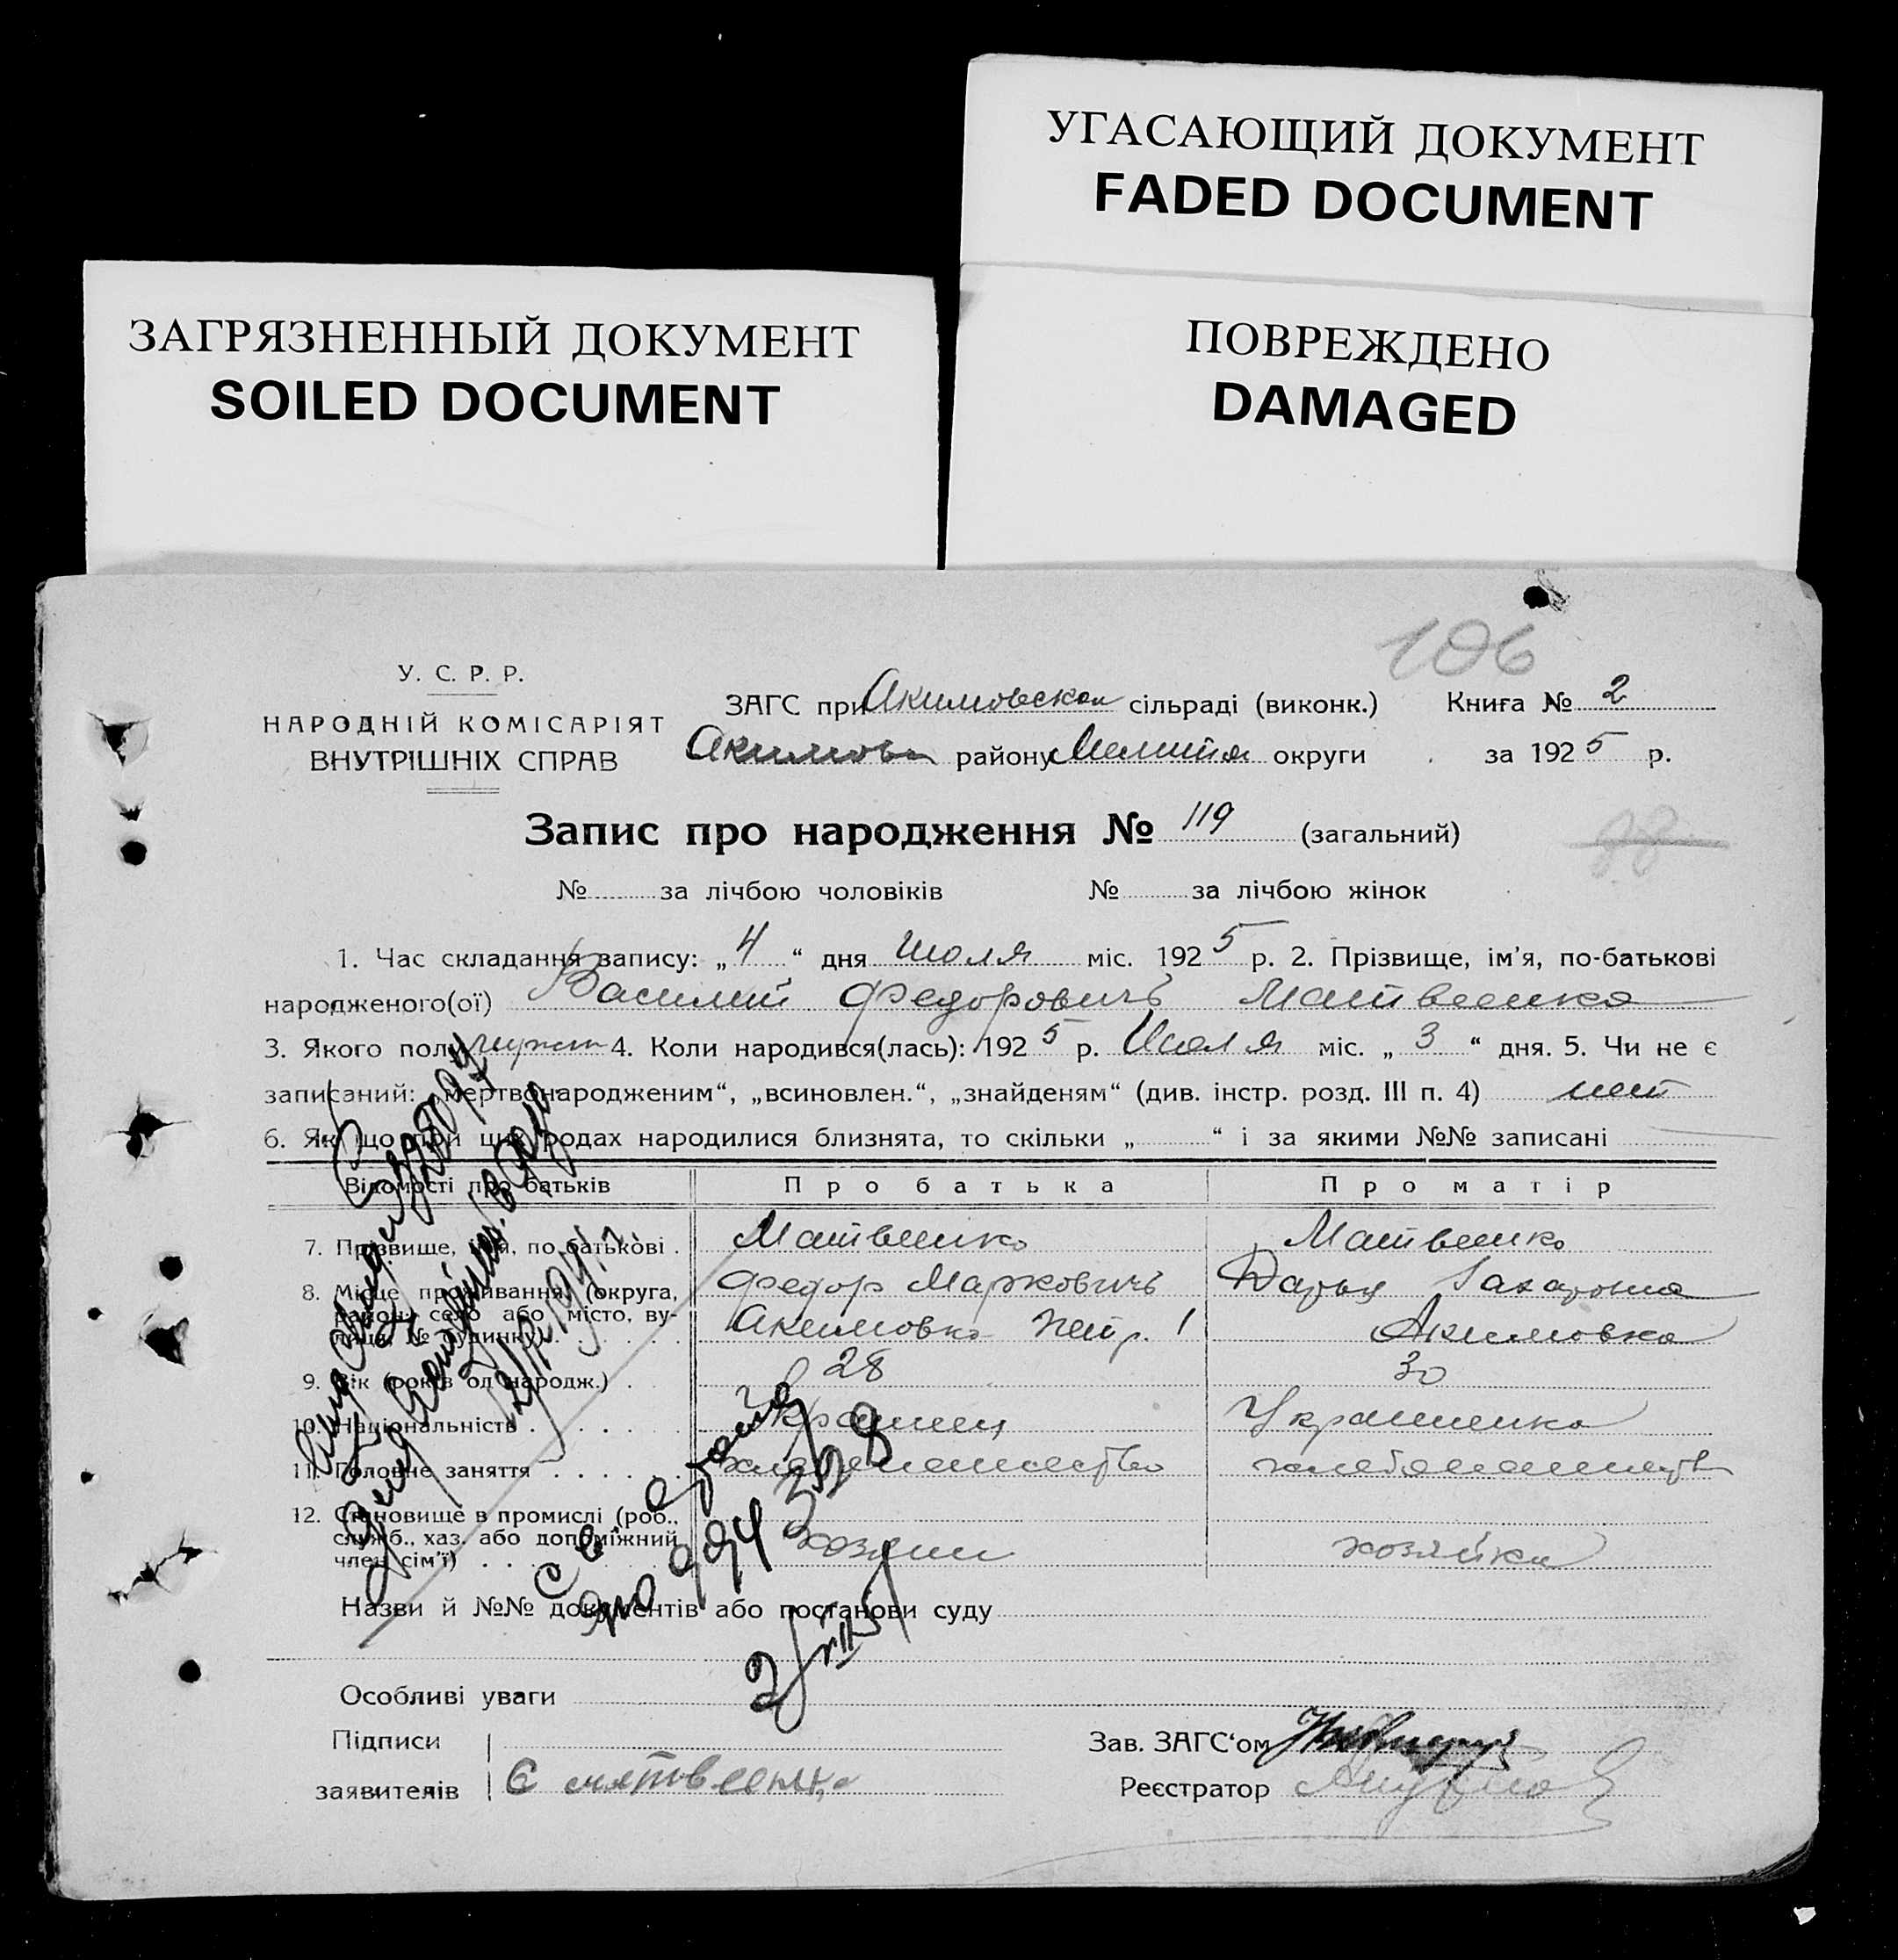 УГАСАЮЩИЙ ДОКУМЕНТ
FADED DOCUMENT
ЗАГРЯЗНЕННЫЙ ДОКУМЕНТ
SOILED DOCUMENT
ПОВРЕЖДЕНО
DAMAGED
106
У. С. Р. Р.
НАРОДНІЙ КОМІСАРІЯТ
ВНУТРІШНІХ СПРАВ
ЗАГС при Акимовском сільраді (виконк.) Книга № 2
Акимов району Мелитоп округи за 1925 р.
Запис про народження № 119 (загальний)
98
№ за лічбою чоловіків № за лічбою жінок
1. Час складання запису: „4“ дня Июля міс. 1925 р. 2. Прізвище, ім'я, по-батькові
народженого(ої) Василий Федоровичъ Матвеенко
3. Якого полу мужск 4. Коли народився(лась): 1925 р. Июля міс. „3“ дня. 5. Чи не є
записаний: „мертвонародженим“, „всиновлен.“, „знайденям“ (див. інстр. розд. III п. 4) нет
6. Як що при цих родах народилися близнята, то скільки „ “ і за якими №№ записані
Відомості про батьків Про батька Про матір
7. Прізвище, ім'я, по-батькові Матвеенко Матвеенко
8. Місце проживання (округа, Федор Марковичъ Дарья Захаровна
район, село або місто, ву-
лиця, № будинку) Акимовка 1 Акимовка
9. Вік (років од народж.) 28 30
10. Національність Украинец Украинка
11. Головне заняття хлебопашество хлебопашеств
12. Становище в промислі (роб.,
служб., хаз. або допоміжний
член сім'ї) хозяин хозяйка
994358
Назви й №№ документів або постанови суду
Особливі уваги
Підписи Зав. ЗАГС'ом
заявителів Є матвеенко Реєстратор